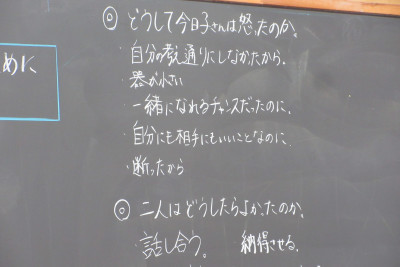 ◎ どうして今日子さんは怒ったのか。
・自分の考え通りにしなかたから.
・器が小さい
・一緒になれるチャンスだったのに.
・自分にも相手にもいいことなのに.
・断ったから
めに
◎ 二人はどうしたらよかったのか.
・話し合う。 納得させる.